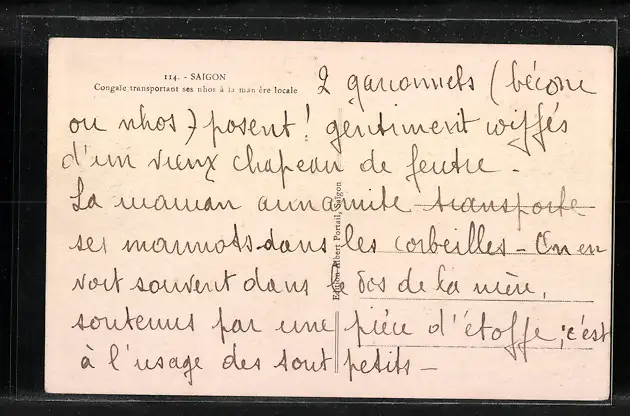 114. - SAIGON
Congaïe transportant ses nhos à la man ère locale
2 garçonnets (bécons
ou nhos) posent ! gentiment coiffés
d'un vieux chapeau de feutre -
La maman annamite transporte
ses marmots dans les corbeilles - On en
voit souvent dans le dos de la mère,
soutenus par une pièce d'étoffe ; c'est
à l'usage des tout petits -
Edition Albert Portail, Saigon